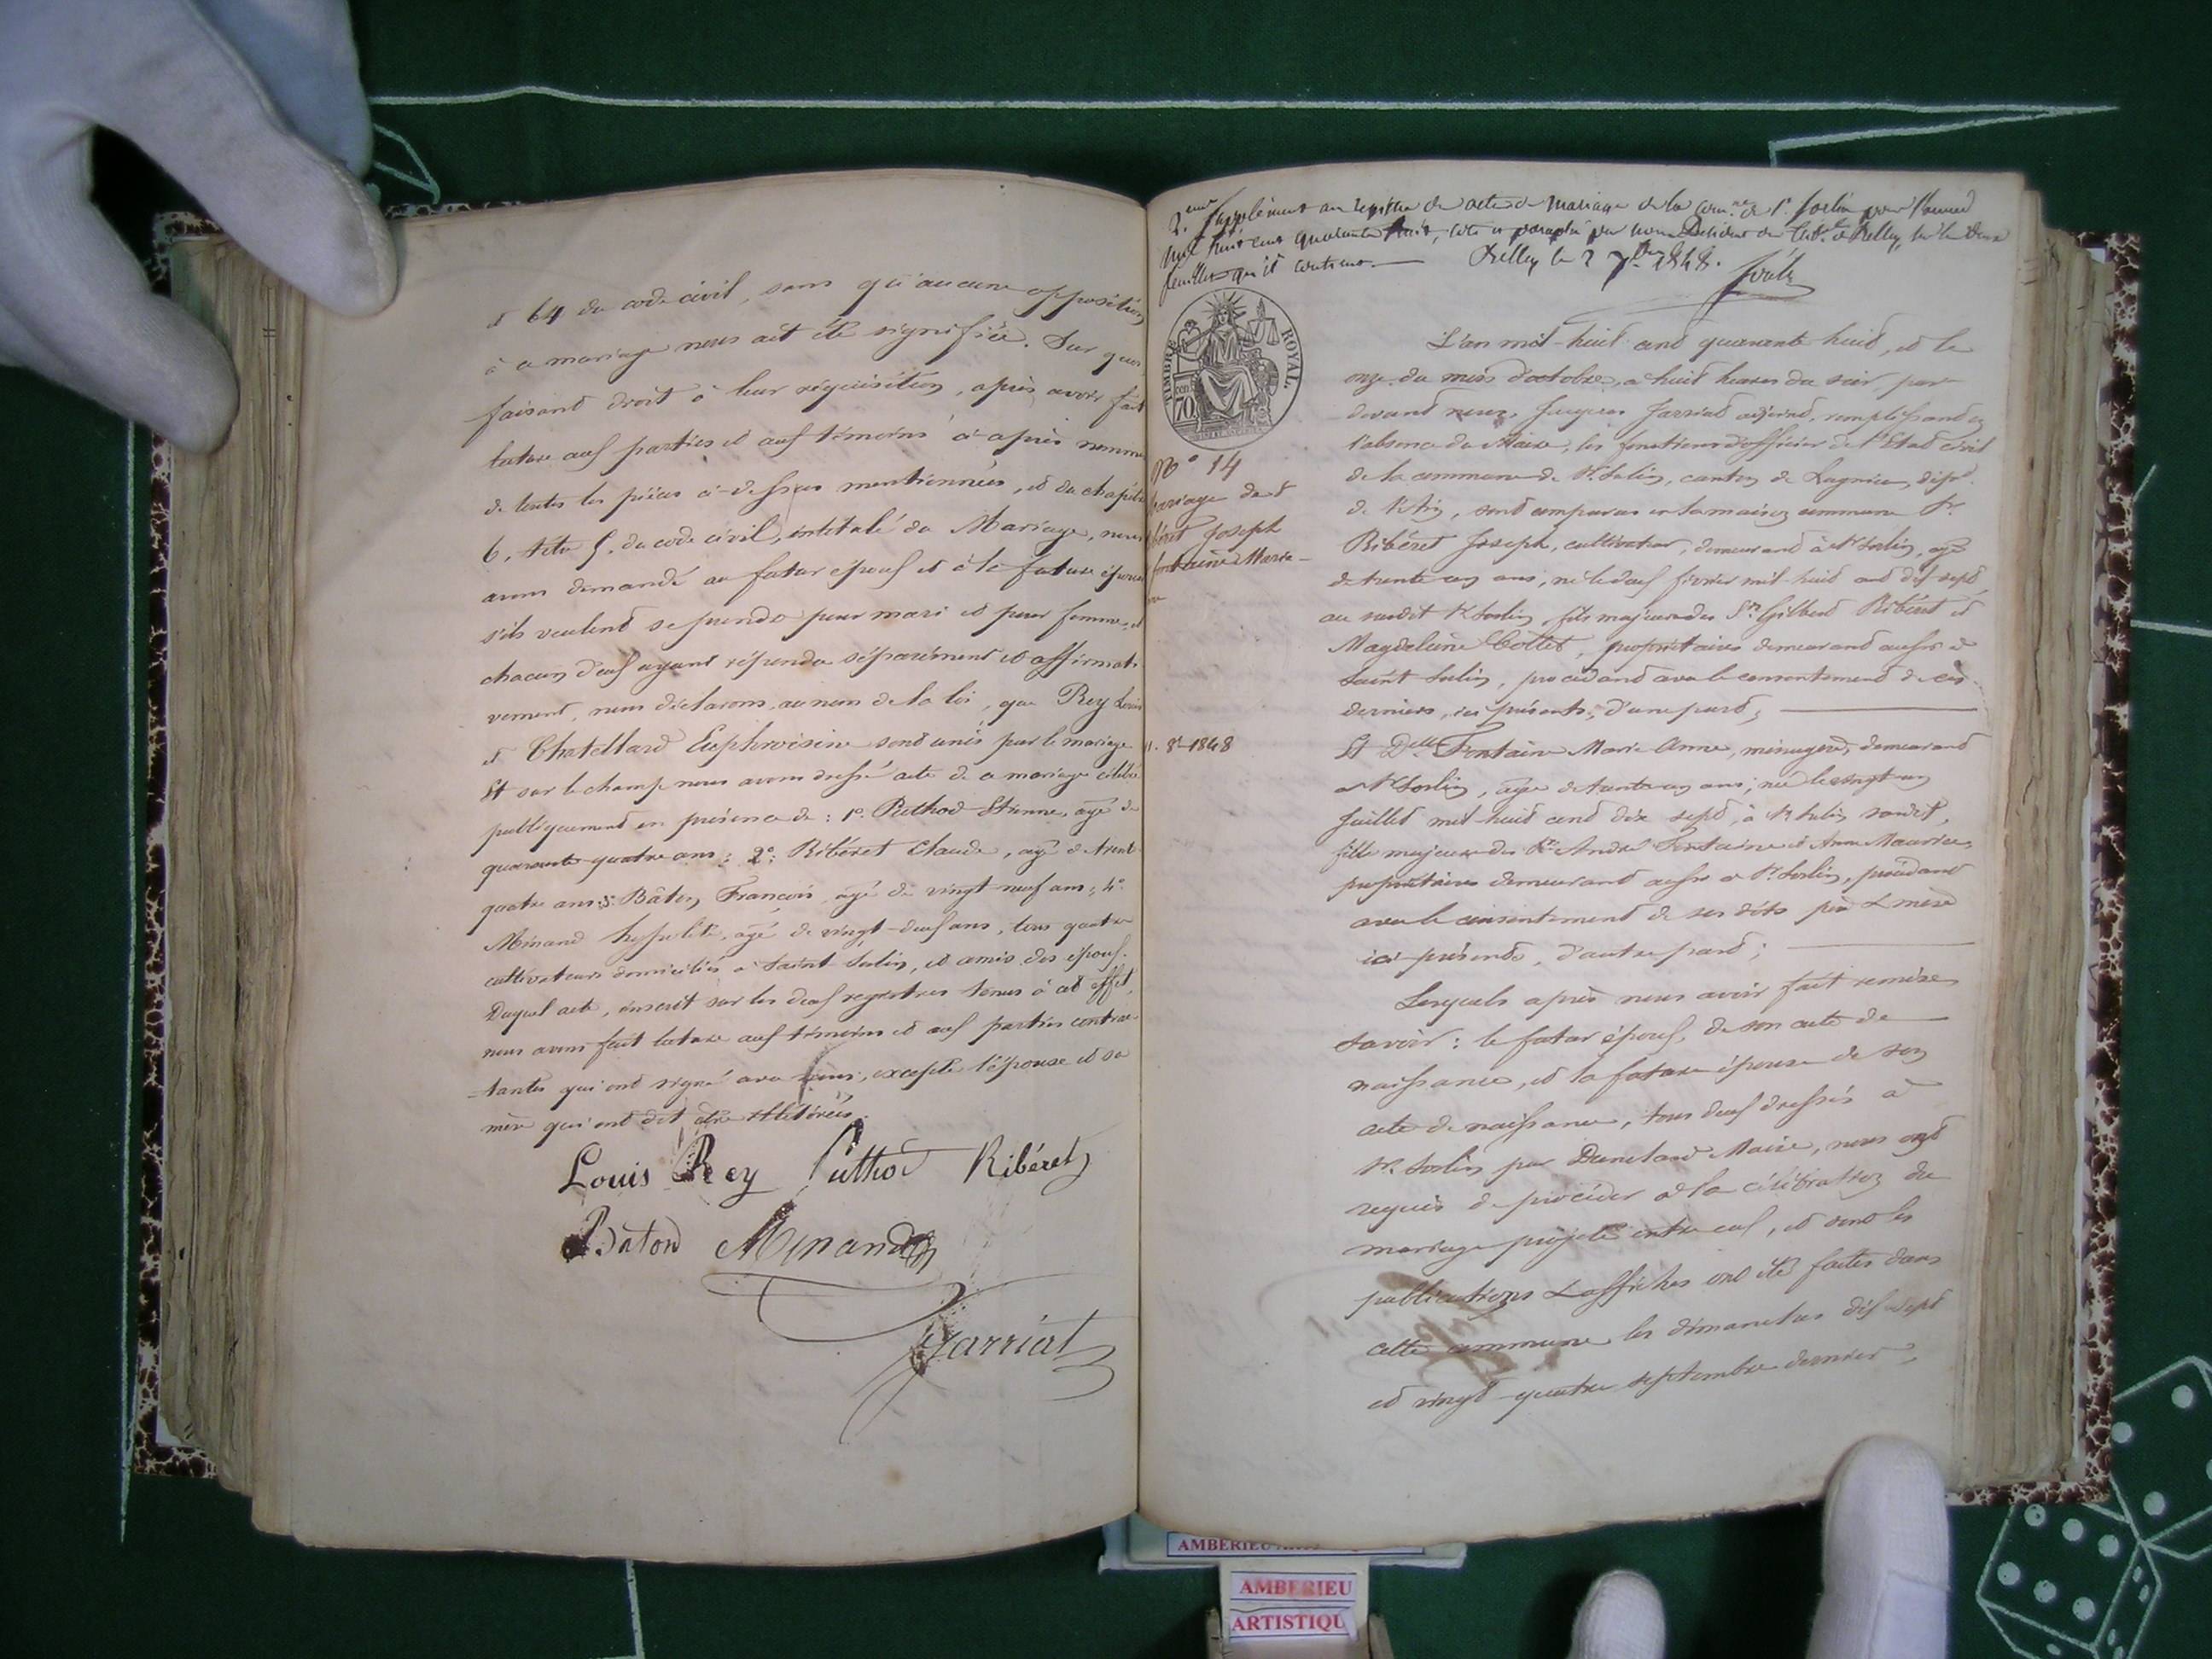 et 64 du code civil, sans qu'aucune opposition
à ce mariage nous ait été signifiée. Sur quoi
faisant droit à leur réquisition, après avoir fait
lecture aux parties et aux témoins ci-après nommés
de toutes les pièces ci-dessus mentionnées, et du chapitre
6, titre 5, du code civil, intitulé du Mariage, nous
avons demandé au futur époux et à la future épouse
s'ils veulent se prendre pour mari et pour femme, et
chacun d'eux ayant répondu séparément et affirmati
vement, nous déclarons, au nom de la loi, que Rey Louis
et Chatellard Euphroisine sont unis par le mariage
Et sur le champ nous avons dressé acte de ce mariage célébré
publiquement en présence de : 1° Puthod Etienne, agé de
quarante quatre ans; 2° Ribéret Claude, agé de trente
quatre ans; 3° Bâton François agé de vingt neuf ans; 4°
Minand hypolite, agé de vingt-deux ans, tous quatre
cultivateurs domiciliés à Saint Sorlin, et amis des époux.
Duquel acte, inscrit sur les deux registres tenus à cet effet,
nous avons fait lecture aux témoins et aux parties contrac
tantes qui ont signé avec nous, excepté l'épouse et sa
mère qui ont dit être illétérées.
Louis Rey Puthod Ribéret
Baton Minand
Jarriat
2.eme Supplément au registre des actes de mariage de la com.ne de St Sorlin pour l'année
mil huit cent quarante huit, coté et paraphé par nous Président du de Belley, sur les deux
feuilles qu'il contient. Belley le 2 7bre 1848.
TIMBRE ROYAL
70
N° 14
Mariage de
Ribéret Joseph
fontaine Marie-
L'an mil-huit cent quarante huit, et le
onze du mois d'octobre, a huit heures du soir, par
devant nous, Jacques Jarriat adjoint, remplissant en
l'absence du Maire, les fonctions d'officier de l'Etat civil
de la commune de St Sorlin, canton de Lagnieu, dépt
de l'Ain, sont comparus en la maison commune Sr
Ribéret Joseph, cultivateur, demeurant à St Sorlin, agé
de trente un ans, né le deux février mil-huit cent dix-sept
au susdit St Sorlin, fils majeur des Srs Gilbert Ribéret et
Magdeleine Collet, propriétaires demeurant aussi à
Saint Sorlin, procédant avec le consentement de ces
derniers, ici présents, d'une part;
11. 8bre 1848
Et Delle Fontaine Marie Anne, ménagère, demeurant
à St Sorlin, agée de trente un ans, née le vingt un
Juillet mil-huit cent dix sept, à St Sorlin susdit,
fille majeure des Srs André Fontaine et Anne Maurice,
propriétaires demeurant aussi à St Sorlin, procédant
avec le consentement de ses dits père & mère
ici présents, d'autre part;
Lesquels après nous avoir fait remise
savoir : le futur époux, de son acte de
naissance, et la future épouse de son
acte de naissance, tous deux dressés à
St Sorlin par Maire, nous ont
requis de procéder à la célébration du
mariage projeté entre eux, et dont les
publications & affiches ont été faites dans
cette commune les dimanches dix-sept
et vingt-quatre septembre dernier,
AMBERIEU
AMBERIEU
ARTISTIQU